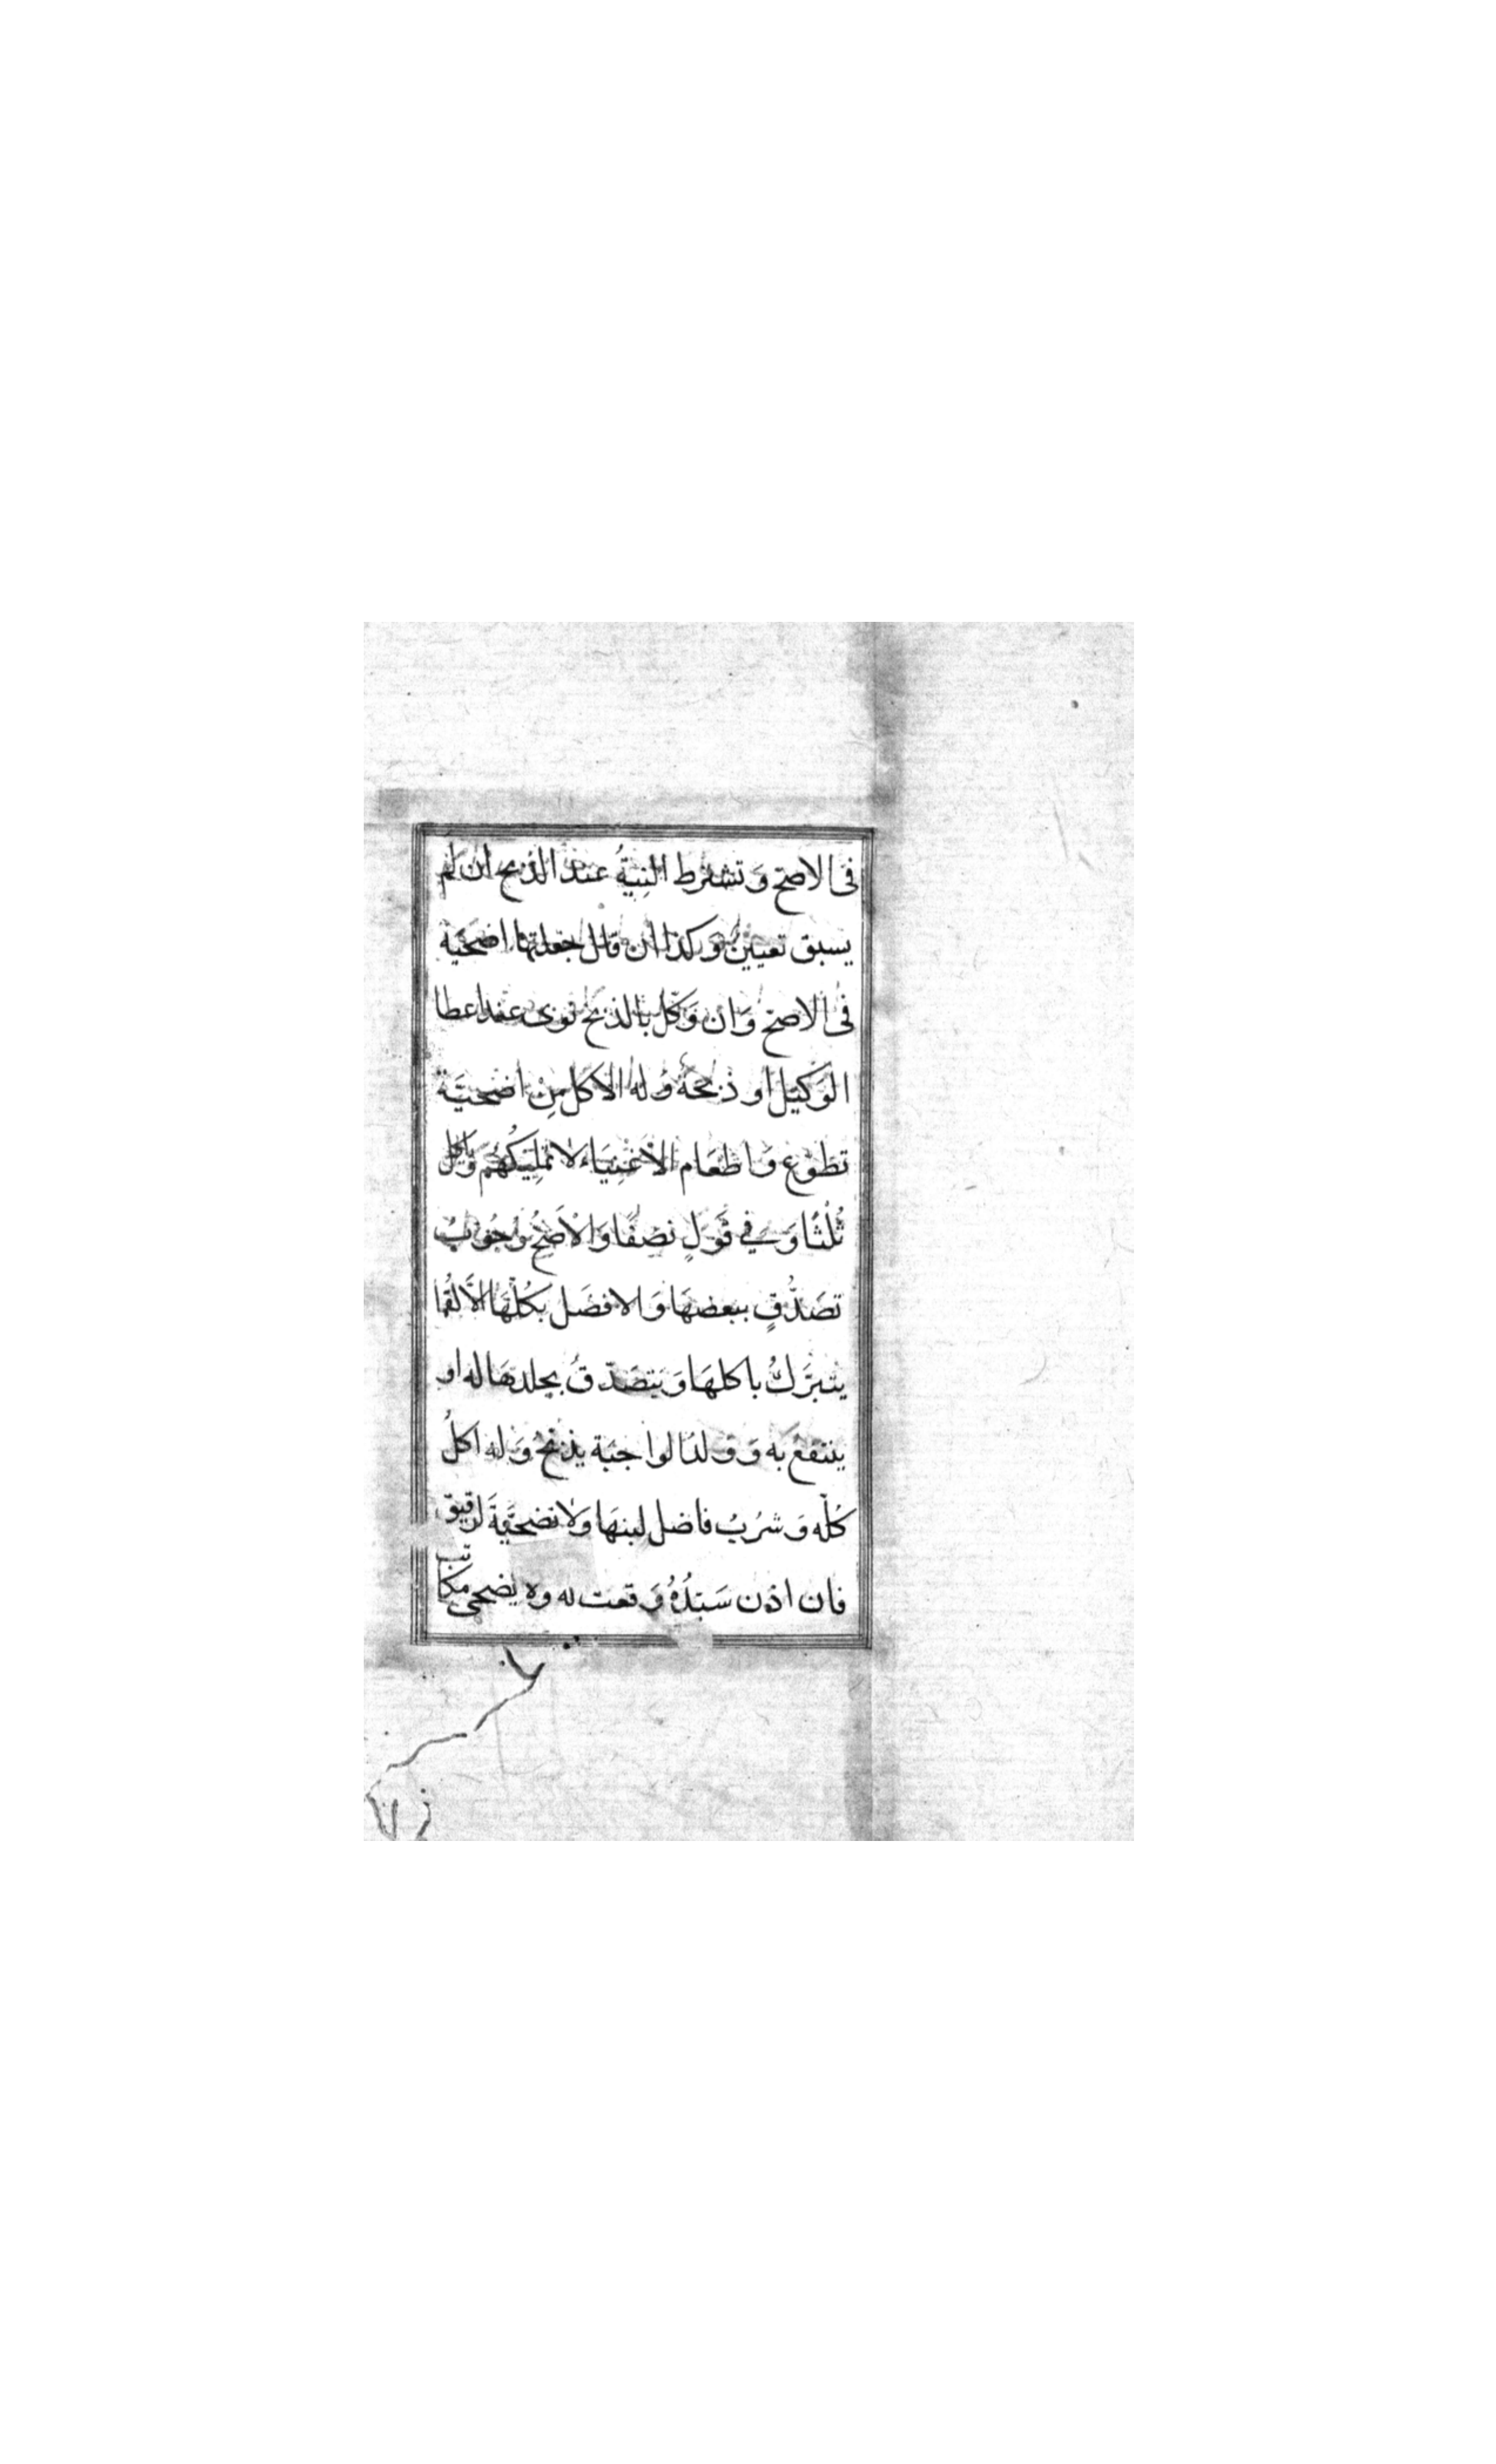 فى الاصح وَتشترط النيةُ عند الذبح ان لم
يسبق تعيين وَكذا ان قال جعلتها اضحية
فى الاصح وَان وَكل بالذبح نوى عند اعطا
الوَكيل او ذبحه وَله الاكل من اضحيَة
تطوع وَاطعَام الاغنيَاء لا تمليكهم وَياكل
ثُلثا وَفي قَولٍ نصفًا وَالاَصحُ وُجُوبُ
تصَدُّقٍ ببعضهَا وَالافضَل بكُلّهَا الاَّ لقُما
يتبرَّكُ باكلهَا وَيتصَدّقُ بجلدهَا له او
ينتفعُ به وَ وَلد الواجبة يذبح وَله اكلُ
كُلّه وَشرُبُ فاضل لبنهَا وَلا تضحيَةَ لرقيق
فان اذن سَيّدُهُ وَقعت له وه يضحى مكاتب